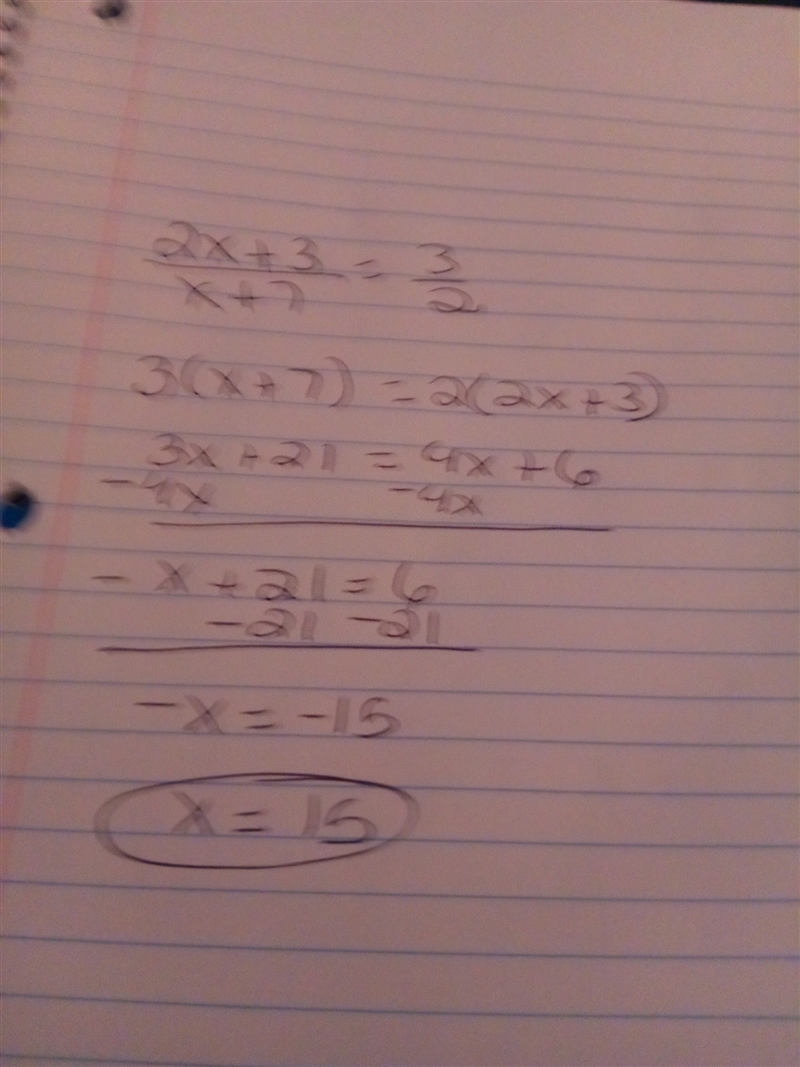 2x+3/x+7 = 3/2
3(x+7) = 2(2x+3)
3x+21 = 4x+6
-4x -4x
-x+21=6
-21 -21
-x = -15
x = 15